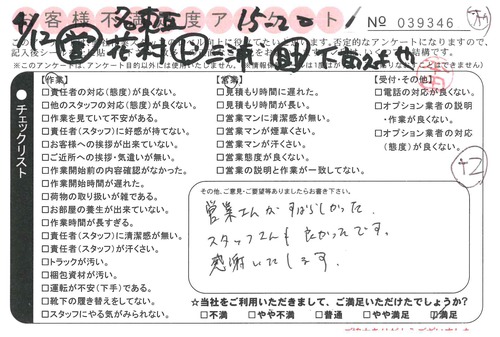 お客様不満足度アンケート
No 039346
4/12
15-22
※このアンケートは、アンケート目的以外には使用いたしません。
チェックリスト
【作業】
□責任者の対応(態度)が良くない。
□他のスタッフの対応(態度)が良くない。
□作業を見ていて不安がある。
□責任者(スタッフ)に好感が持てない。
□お客様への挨拶が出来ていない。
□ご近所への挨拶・気遣いが無い。
□作業開始前の内容確認がなかった。
□作業開始時間が遅れた。
□荷物の取り扱いが雑である。
□お部屋の養生が出来ていない。
□作業時間が長すぎる。
□責任者(スタッフ)に清潔感が無い。
□責任者(スタッフ)が汗くさい。
□トラックが汚い。
□梱包資材が汚い。
□運転が不安(下手)である。
□靴下の履き替えをしてない。
□スタッフにやる気がみられない。
【営業】
□見積もり時間に遅れた。
□見積もり時間が長い。
□営業マンに清潔感が無い。
□営業マンが煙草くさい。
□営業マンが汗くさい。
□営業態度が良くない。
□営業の説明と作業が一致してない。
【受付・その他】
□電話の対応が良くない。
□オプション業者の説明
・作業が良くない。
□オプション業者の対応
(態度)が良くない。
+2
その他、ご意見・ご要望等ありましたらお書き下さい。
営業さんがすばらしかった。
スタッフさんも良かったです。
感謝いたします。
☆当社をご利用いただきまして、ご満足いただけたでしょうか?
□不満 □やや不満 □普通 □やや満足 □満足
ご協力ありがとうございました